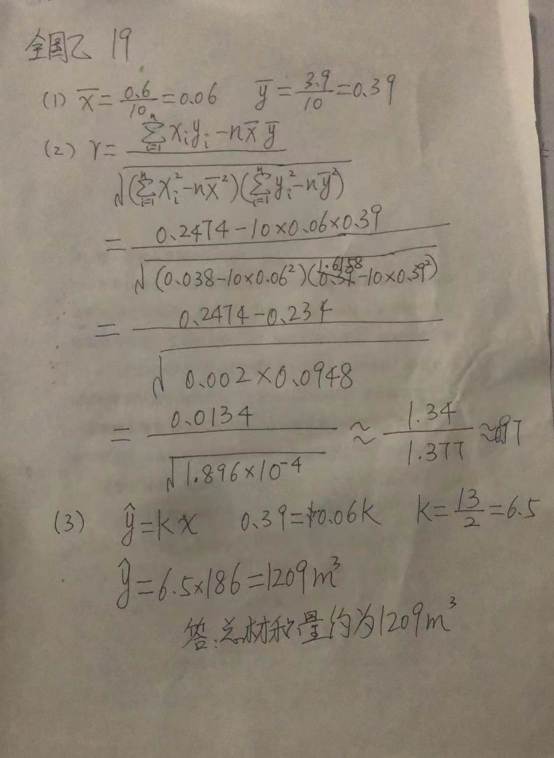 全国乙 19
(1) x̄ = 0.6/10 = 0.06  ȳ = 3.9/10 = 0.39
(2) r = (∑ⁿᵢ₌₁ xᵢyᵢ - nx̄ȳ) / √((∑ⁿᵢ₌₁ xᵢ² - nx̄²)(∑ⁿᵢ₌₁ yᵢ² - nȳ²))
= (0.2474 - 10×0.06×0.39) / √((0.038 - 10×0.06²)(1.6158 - 10×0.39²))
= (0.2474 - 0.234) / √(0.002×0.0948)
= 0.0134 / √(1.896×10⁻⁴) ≈ 1.34/1.377 ≈ 0.97
(3) ŷ = kx  0.39 = 0.06k  k = 13/2 = 6.5
ŷ = 6.5×186 = 1209m³
答:总材积量约为1209m³